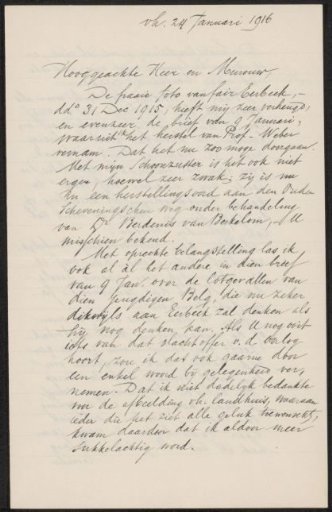 vh. 24 Januari 1916
Hooggeachte Heer en Mevrouw,
De fraaie foto van fair Eerbeek,
dd° 31 Dec 1915, heeft mij zeer verheugd;
en evenzeer de brief van 9 Januari,
waaruit ik het herstel van Prof. Weber
vernam. Dat het nu zoo moge doorgaan.
Met mijn Schoonzuster is het ook niet
erger, hoewel zeer zwak; zij is nu
in een herstellingsoord aan den Ouden
Scheveningschen weg onder behandeling
van Dr Berdenis van Berkelom, U
misschien bekend.
Met oprechte belangstelling las ik
ook al àl het andere in dien brief
van 9 Jan. over de lotgevallen van
dien jeugdigen Belg, die nu zeker
dikwijls aan Eerbeek zal denken als
hij nog denken kan. Als U nog ooit
iets van dat slachtoffer v. d. oorlog
hoort, zou ik dat ook gaarne door
een enkel woord bij gelegenheid ver-
nemen. Dat ik niet dadelijk bedankte
voor de afbeelding vh. landhuis, waaraan
ieder die het ziet alle geluk toewenscht,
kwam daardoor dat ik aldoor meer
sukkelachtig word.